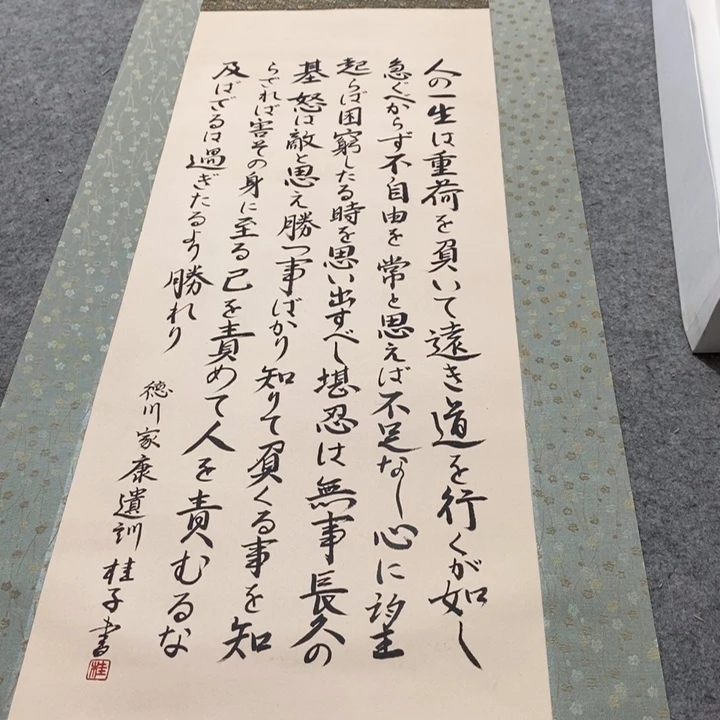 人の一生は重荷を負いて遠き道を行くが如し
急ぐべからず不自由を常と思えば不足なし心に望
起らば困窮したる時を思い出すべし堪忍は無事長久の
基怒は敵と思え勝つ事ばかり知りて負くる事を知
らざれば害その身に至る己を責めて人を責むるな
及ばざるは過ぎたるより勝れり
徳川家康遺訓 桂子書
桂